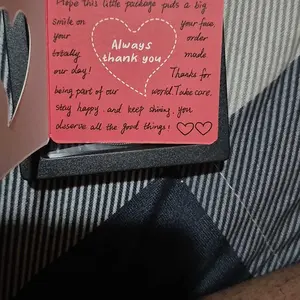 Hope this little package puts a big
smile on your face,
your order
totally made
our day! Thanks for
being part of our world. Take care,
stay happy, and keep shining, you
deserve all the good things!
Always
thank you